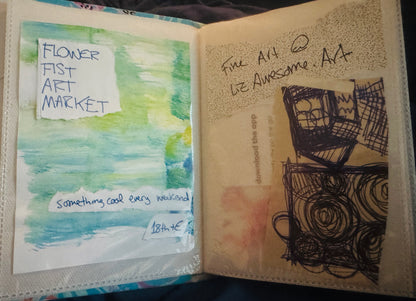 FLOWER
FIST
ART
MARKET
Something cool every weekend
18th + E
Fine Art @
Liz Awesome.Art
download the app